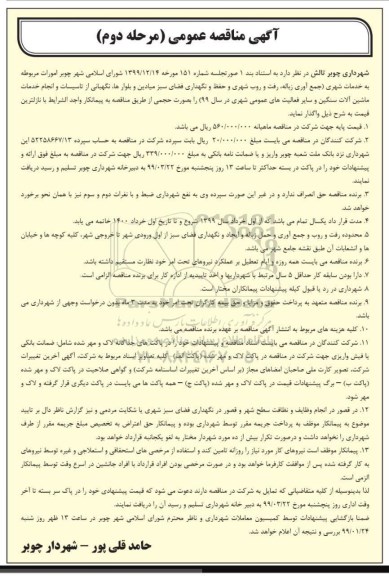 آگهی مناقصه عمومی (مرحله دوم)
شهرداری چوبر تالش در نظر دارد به استناد بند ۱ صورتجلسه شماره ۱۵۱ مورخه ۱۳۹۹/۱۲/۱۴ شورای اسلامی شهر چوبر امورات مربوطه
به خدمات شهری (جمع آوری زباله، رفت و روب شهری و حفظ و نگهداری فضای سبز میادین و بلوار ها، نگهبانی از تاسیسات و انجام خدمات
ماشین آلات سنگین و سایر فعالیت های عمومی شهری در سال ۹۹) را بصورت حجمی از طریق مناقصه به پیمانکار واجد الشرایط با نازلترین
قیمت به شرح ذیل واگذار نماید.
۱. قیمت پایه جهت شرکت در مناقصه ماهیانه ۵۶۰/۰۰۰/۰۰۰ ریال می باشد.
۲. شرکت کنندگان در مناقصه می بایست مبلغ ۲۰/۰۰۰/۰۰۰ ریال بابت سپرده شرکت در مناقصه به حساب سپرده ۵۲۲۵۸۶۶۷/۱۳
شهرداری نزد بانک ملت شعبه چوبر واریز و یا ضمانت نامه بانکی به مبلغ ۳۳۹/۰۰۰/۰۰۰ ریال جهت شرکت در مناقصه به مبلغ فوق ارائه و
پیشنهادات خود را در پاکت در بسته حداکثر تا ساعت ۱۳ روز پنجشنبه مورخ ۹۹/۰۳/۲۲ به دبیرخانه شهرداری چوبر تسلیم و رسید دریافت
نمایند.
۳. برنده مناقصه حق انصراف ندارد و در غیر این صورت سپرده وی به نفع شهرداری ضبط و با نفرات دوم و سوم نیز با همان نحو برخورد
خواهد شد.
۴. مدت قرار داد یکسال تمام می باشد که از اول خرداد سال ۱۳۹۹ شروع و تا تاریخ اول خرداد ۱۴۰۰ خاتمه می یابد.
۵. محدوده رفت و روب و جمع آوری و حمل زباله و ایجاد و نگهداری فضای سبز از اول ورودی شهر تا خروجی شهر، کلیه کوچه ها و خیابان
ها و انشعابات آن طبق نقشه جامع شهر می باشد.
۶. برنده مناقصه می بایست همه روزه و ایام تعطیل بر عملکرد نیروهای تحت امر خود نظارت مستقیم داشته باشد.
۷. دارا بودن سابقه کار حداقل ۵ سال مرتبط با شهرداریها و اخذ تاییدیه از اداره کار برای برنده مناقصه الزامی است.
۸. شهرداری در رد یا قبول کیله پیشنهادات پیمانکاران مختار است.
۹. برنده مناقصه متعهد به پرداخت حقوق و مزایا و حق بیمه کارگران تحت امر خود به مدت ۳ ماه بدون درخواست وجهی از شهرداری می
باشد.
۱۰. کلیه هزینه های مربوط به انتشار آگهی مناقصه بر عهده برنده مناقصه می باشد.
۱۱. شرکت کنندگان در مناقصه می بایست اسناد مناقصه و پیشنهادات خود را در پاکت های جداگانه لاک و مهر شده شامل: ضمانت بانکی
یا فیش واریزی جهت شرکت در مناقصه در پاکت لاک و مهر شده (پاکت الف) کلیه تصاویر اسناد مربوط به شرکت، آگهی آخرین تغییرات
شرکت، تصویر کارت ملی صاحبان امضاهای مجاز (بر اساس آخرین تغییرات اساسنامه شرکت) و گواهی صلاحیت در پاکت لاک و مهر شده
(پاکت ب) – برگ پیشنهادات قیمت در پاکت لاک و مهر شده (پاکت ج) – همه پاکت ها می بایست در پاکت دیگری قرار گرفته و لاک و
مهر شود.
۱۲. در قصور در انجام وظایف و نظافت سطح شهر و قصور در نگهداری فضای سبز شهری با شکایت مردمی و نیز گزارش ناظر دال بر تایید
موضوع به پیمانکار موظف به پرداخت جریمه مقرر توسط شهرداری بوده و پیمانکار حق اعتراض به تخصیص مبلغ جریمه مقرر از طرف
شهرداری را نخواهد داشت و درصورت تکرار بیش از ده مورد شهردار مختار به لغو یکجانبه قرارداد خواهد بود.
۱۳. پیمانکار موظف است نیروهای کار مورد نیاز را روزانه تامین کند و استفاده از مرخصی های استحقاقی و استعلاجی و غیره توسط نیروهای
به کار گرفته شده پس از موافقت کارفرما خواهد بود و در صورت مرخصی بودن افراد قرارداد با افراد جانشین در اسرع وقت توسط پیمانکار
الزامی است.
لذا بدینوسیله از کلیه متقاضیانی که تمایل به شرکت در مناقصه دارند دعوت می شود که قیمت پیشنهادی خود را در پاک سر بسته تا آخر
وقت اداری روز پنجشنبه مورخ ۹۹/۰۳/۲۲ به دبیر خانه شهرداری تسلیم و رسید آن را دریافت نمایند.
ضمنا بازگشایی پیشنهادات توسط کمیسیون معاملات شهرداری و ناظر محترم شورای اسلامی شهر چوبر در ساعت ۱۳ ظهر روز شنبه
۹۹/۰۱/۲۴ بررسی و نتیجه آن اعلام خواهد شد.
حامد قلی پور – شهردار چوبر